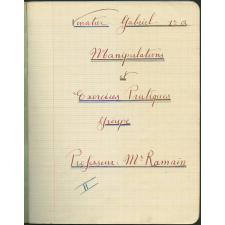 Venatier Gabriel - 1re B
Manipulations
et
Exercices Pratiques
Groupe
Professeur: Mr Ramain
II